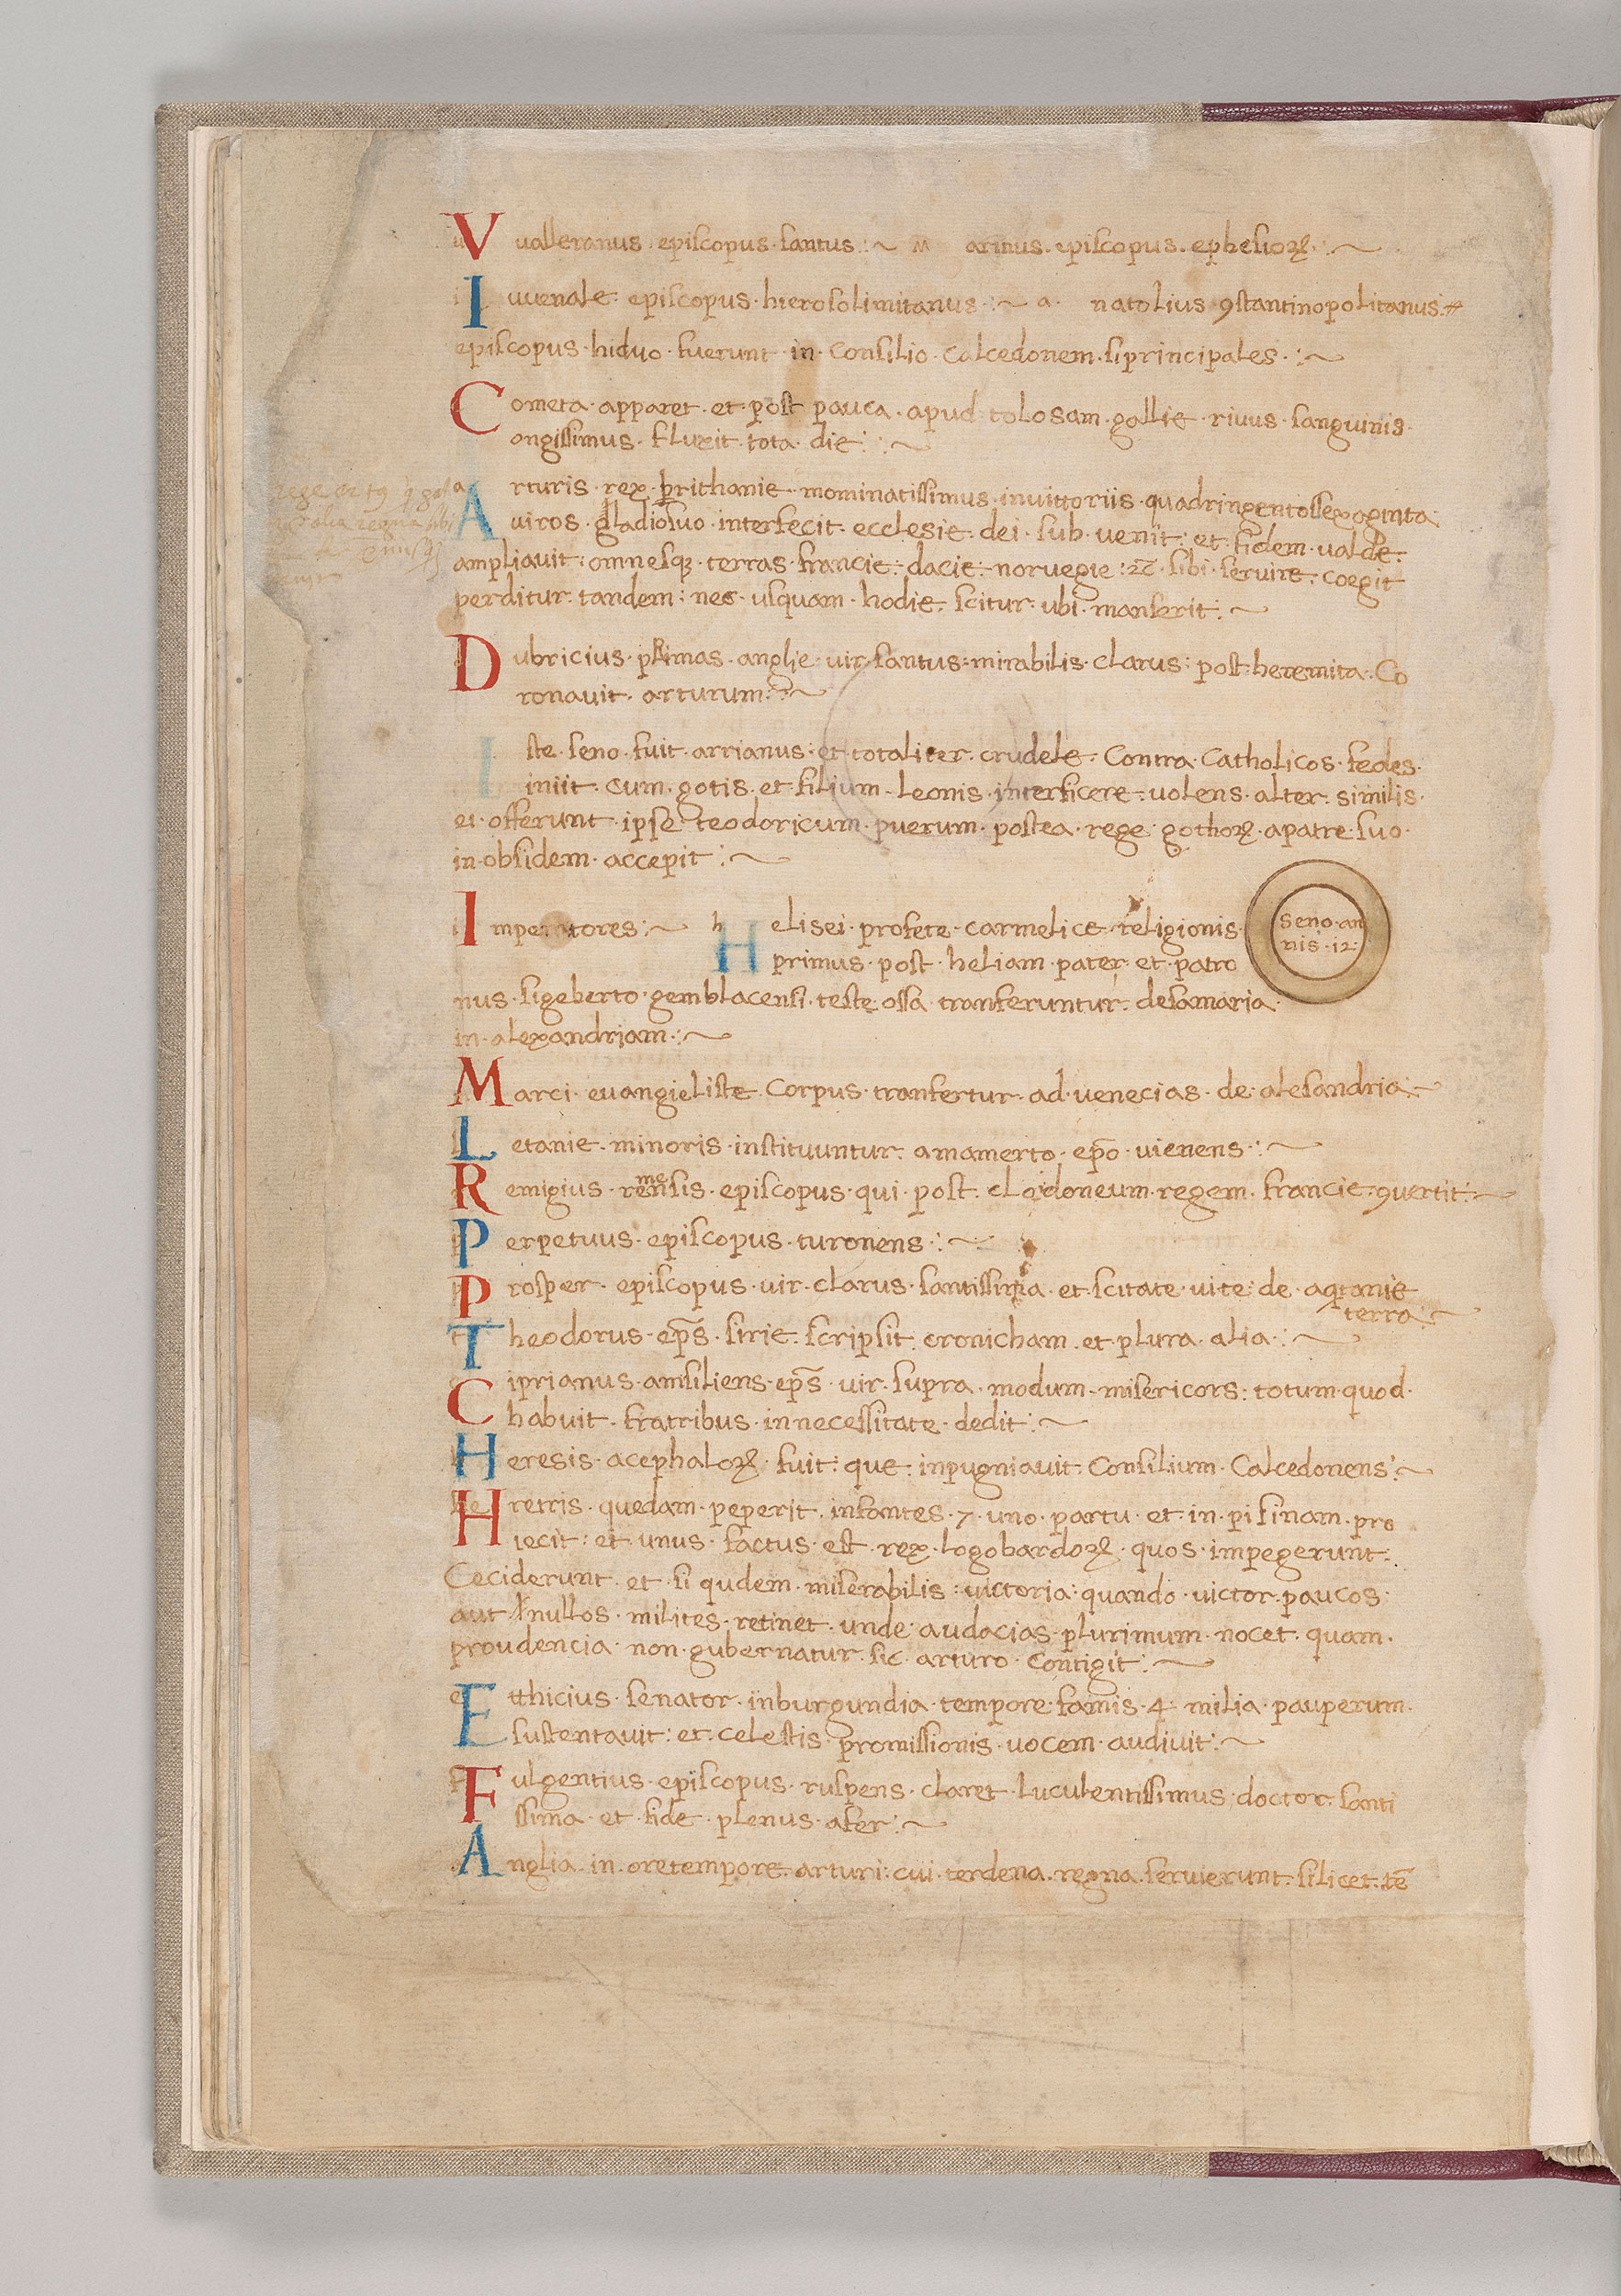 Vualleranus · episcopus · santus :~ M arinus · episcopus · ephesioꝝ :~
Iuuenale · episcopus · hierosolimitanus :~ a · natolius ꝯstantinopolitanus :
episcopus · hiduo · fuerunt · in · Consilio · Calcedonem · siprincipales :~
Cometa · apparet · et · post pauca · apud tolosam · gallie · riuus · sanguinis ·
ongissimus · fluxit · tota · die :~
Arturis · rex · brithanie · mominatissimus · inuittoriis · quadringentossexaginta
uiros · gladiosuo · interfecit · ecclesie · dei · sub · uenit : et · fidem · ualde ·
ampliauit : omnesqꝫ · terras · francie · dacie · noruegie : sibi · seruire · coegit
perditur · tandem : nec · usquam · hodie · scitur · ubi · manserit :~
Dubricius · pRimas · anglie · uir · santus : mirabilis · clarus : post · heremita · Co
ronauit · arturum :~
Iste · seno · fuit · arrianus : et · totaliter · crudele · Contra · Catholicos · fedes ·
iniit · cum · gotis · et · filium · leonis · interficere · uolens · alter · similis ·
ei · offerunt · ipse · teodoricum · puerum · postea · rege · gothoꝝ · apatre · suo ·
in · obsidem · accepit :~
Imperatores :~ Helisei · profete · carmelice · religionis ·
Seno · an
nis · 12 ·
primus · post · heliam · pater · et · patro
nus · sigeberto · gemblacensi · teste · ossa · tranferuntur · desamaria ·
in · alexandriam :~
Marci · euangieliste · Corpus · tranfertur · ad · uenecias · de · alesandria :~
Letanie · minoris · instituuntur · amamerto · ep̄o · uienens :~
Remigius · remensis · episcopus · qui · post · clodoneum · regem · francie · ꝯuertit :~
Perpetuus · episcopus · turonens :~
Prosper · episcopus · uir · clarus · santissima · et · scitate · uite : de · aqtanie
terra :~
Theodorus · ep̄s · sirie · scripsit · cronicham · et · plura · alia :~
Ciprianus · amsiliens · ep̄s · uir · supra · modum · misericors : totum · quod ·
habuit · fratribus · innecessitate · dedit :~
Heresis · acephaloꝝ · fuit : que : inpugniauit · Consilium · Calcedonens :~
Heretris · quedam · peperit · infantes · 7 · uno · partu · et · in · pisinam · pro
iecit : et · unus · factus · est · rex · logobardoꝝ · quos · impegerunt :
Ceciderunt · et · si qudem · miserabilis : uictoria : quando · uictor · paucos ·
aut · nullos · milites · retinet · unde · audacias · plurimum · nocet · quam ·
proudencia · non · gubernatur · sic · arturo · Contigit :~
Etthicius · senator · inburgundia · tempore · famis · 4 · milia · pauperum ·
sustentauit : et · celestis · promissionis · uocem · audiuit :~
Fulgentius · episcopus · ruspens · claret · luculentissimus · doctor · santi
ssima · et · fide · plenus · afer :~
Anglia · in · oretempore · arturi : cui · terdena · regna · seruierunt · silicet · tē